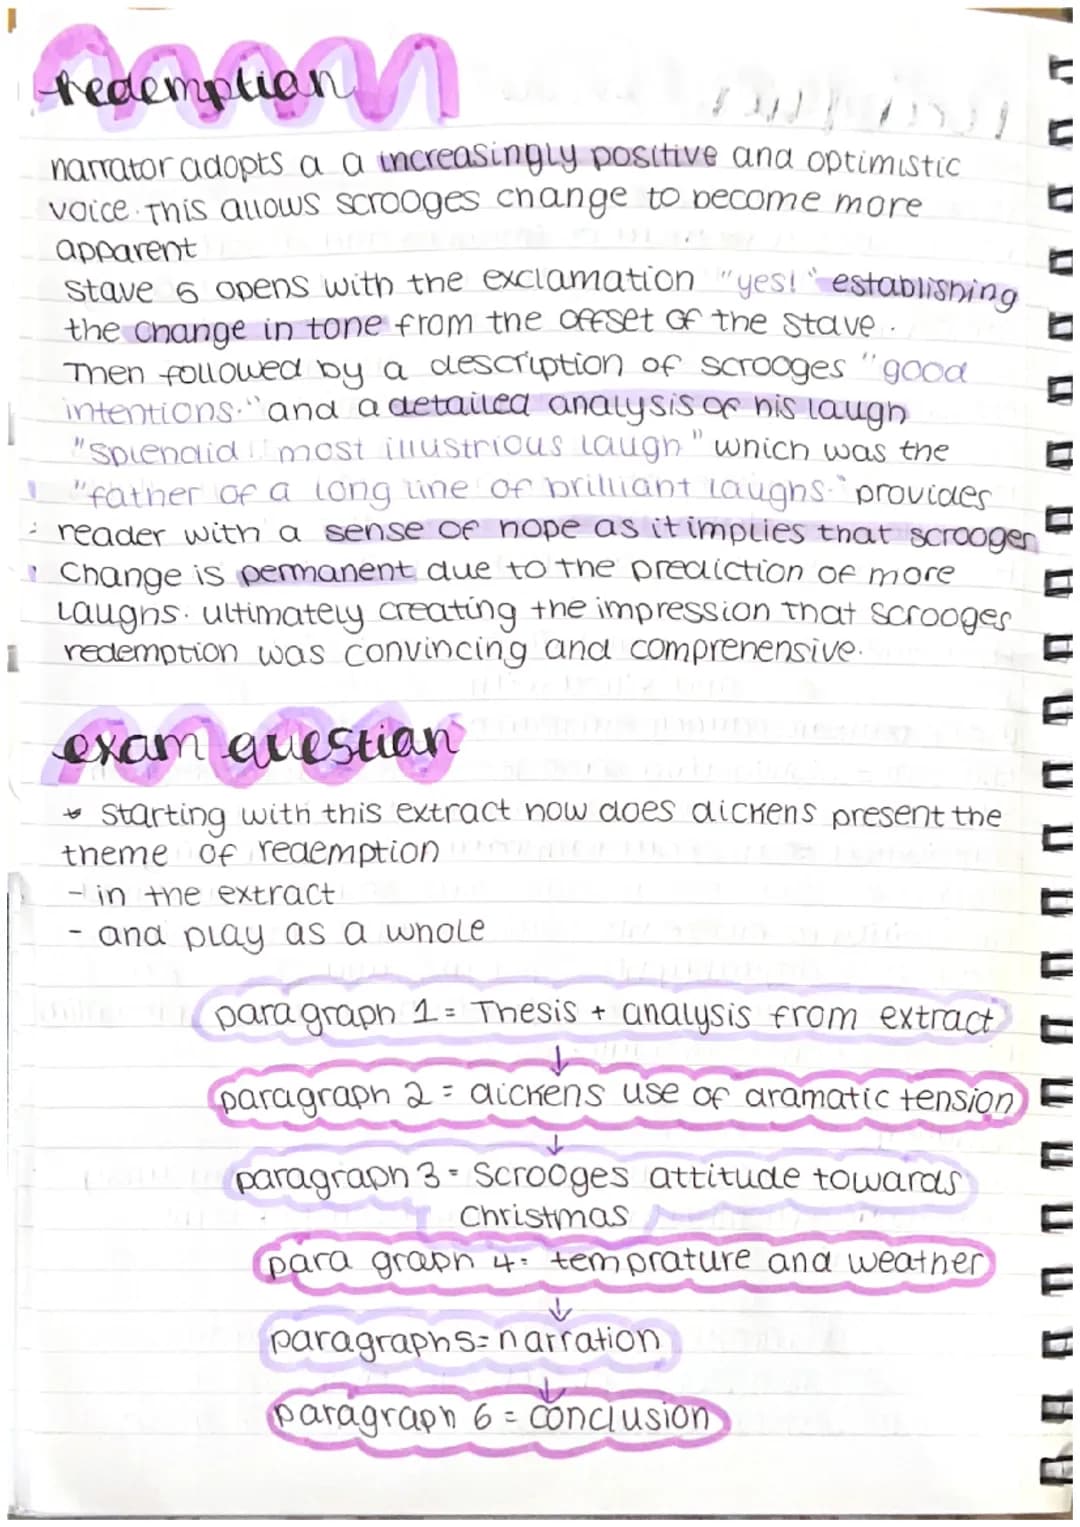 redemption
narrator adopts a a increasingly positive and optimistic
voice. This allows scrooges change to become more
apparent
Stave 5 opens with the exclamation "yes!" establishing
the change in tone from the offset of the stave.
Then followed by a description of scrooges "good
intentions." and a detailed analysis of his laugh
"Splendid most illustrious laugh" which was the
"father of a long line of brilliant laughs." provides
reader with a sense of hope as it implies that scrooges
Change is permanent due to the prediction of more
Laughs. ultimately creating the impression that scrooges
redemption was convincing and comprehensive.
exam question
* Starting with this extract how does dickens present the
theme of redemption
- in the extract
- and play as a whole
paragraph 1 = Thesis + analysis from extract
↓
paragraph 2 = dickens use of dramatic tension
↓
paragraph 3 = Scrooges attitude towards
Christmas
para graph 4 = temprature and weather
↓
paragraph 5 = narration
↓
paragraph 6 = conclusion